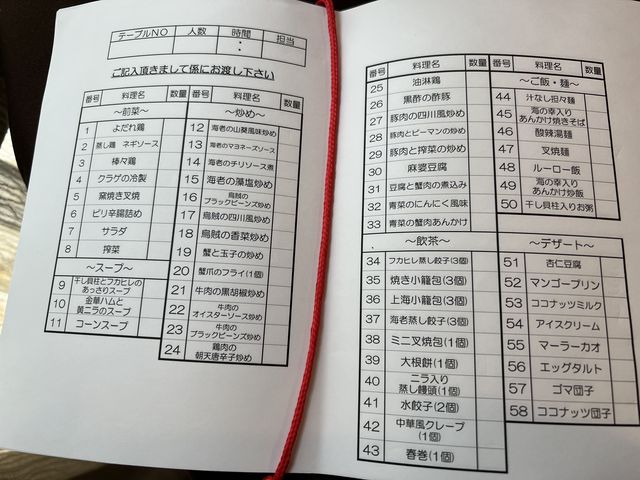 テーブルNO 人数 時間 担当
:
ご記入頂きまして係にお渡し下さい
番号 料理名 数量
～前菜～
1 よだれ鶏
2 蒸し鶏 ネギソース
3 棒々鶏
4 クラゲの冷製
5 窯焼き叉焼
6 ピリ辛腸詰め
7 サラダ
8 搾菜
～スープ～
9 干し貝柱とフカヒレの
あっさりスープ
10 金華ハムと
黄ニラのスープ
11 コーンスープ
番号 料理名 数量
～炒め～
12 海老の山葵風味炒め
13 海老のマヨネーズソース
14 海老のチリソース煮
15 海老の藻塩炒め
16 烏賊の
ブラックビーンズ炒め
17 烏賊の四川風炒め
18 烏賊の香菜炒め
19 蟹と玉子の炒め
20 蟹爪のフライ(1個)
21 牛肉の黒胡椒炒め
22 牛肉の
オイスターソース炒め
23 牛肉の
ブラックビーンズ炒め
24 鶏肉の
朝天唐辛子炒め
番号 料理名 数量
25 油淋鶏
26 黒酢の酢豚
27 豚肉の四川風炒め
28 豚肉とピーマンの炒め
29 豚肉と搾菜の炒め
30 麻婆豆腐
31 豆腐と蟹肉の煮込み
32 青菜のにんにく風味
33 青菜の蟹肉あんかけ
～飲茶～
34 フカヒレ蒸し餃子(3個)
35 焼き小籠包(3個)
36 上海小籠包(3個)
37 海老蒸し餃子(3個)
38 ミニ叉焼包(1個)
39 大根餅(1個)
40 ニラ入り
蒸し饅頭(1個)
41 水餃子(2個)
42 中華風クレープ
(1個)
43 春巻(1個)
番号 料理名 数量
～ご飯・麺～
44 汁なし担々麺
45 海の幸入り
あんかけ焼きそば
46 酸辣湯麺
47 叉焼麺
48 ルーロー飯
49 海の幸入り
あんかけ炒飯
50 干し貝柱入りお粥
～デザート～
51 杏仁豆腐
52 マンゴープリン
53 ココナッツミルク
54 アイスクリーム
55 マーラーカオ
56 エッグタルト
57 ゴマ団子
58 ココナッツ団子